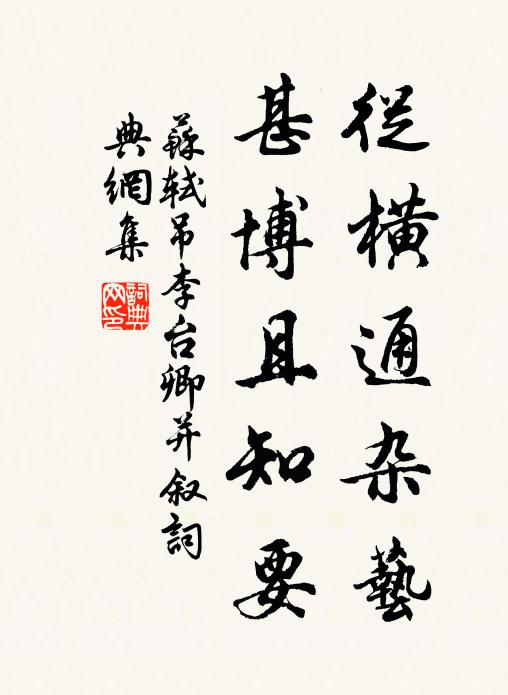 從橫通杂藝
甚博且知要
蘇軾吊李台卿并叙詞
典網集
詞典
网印